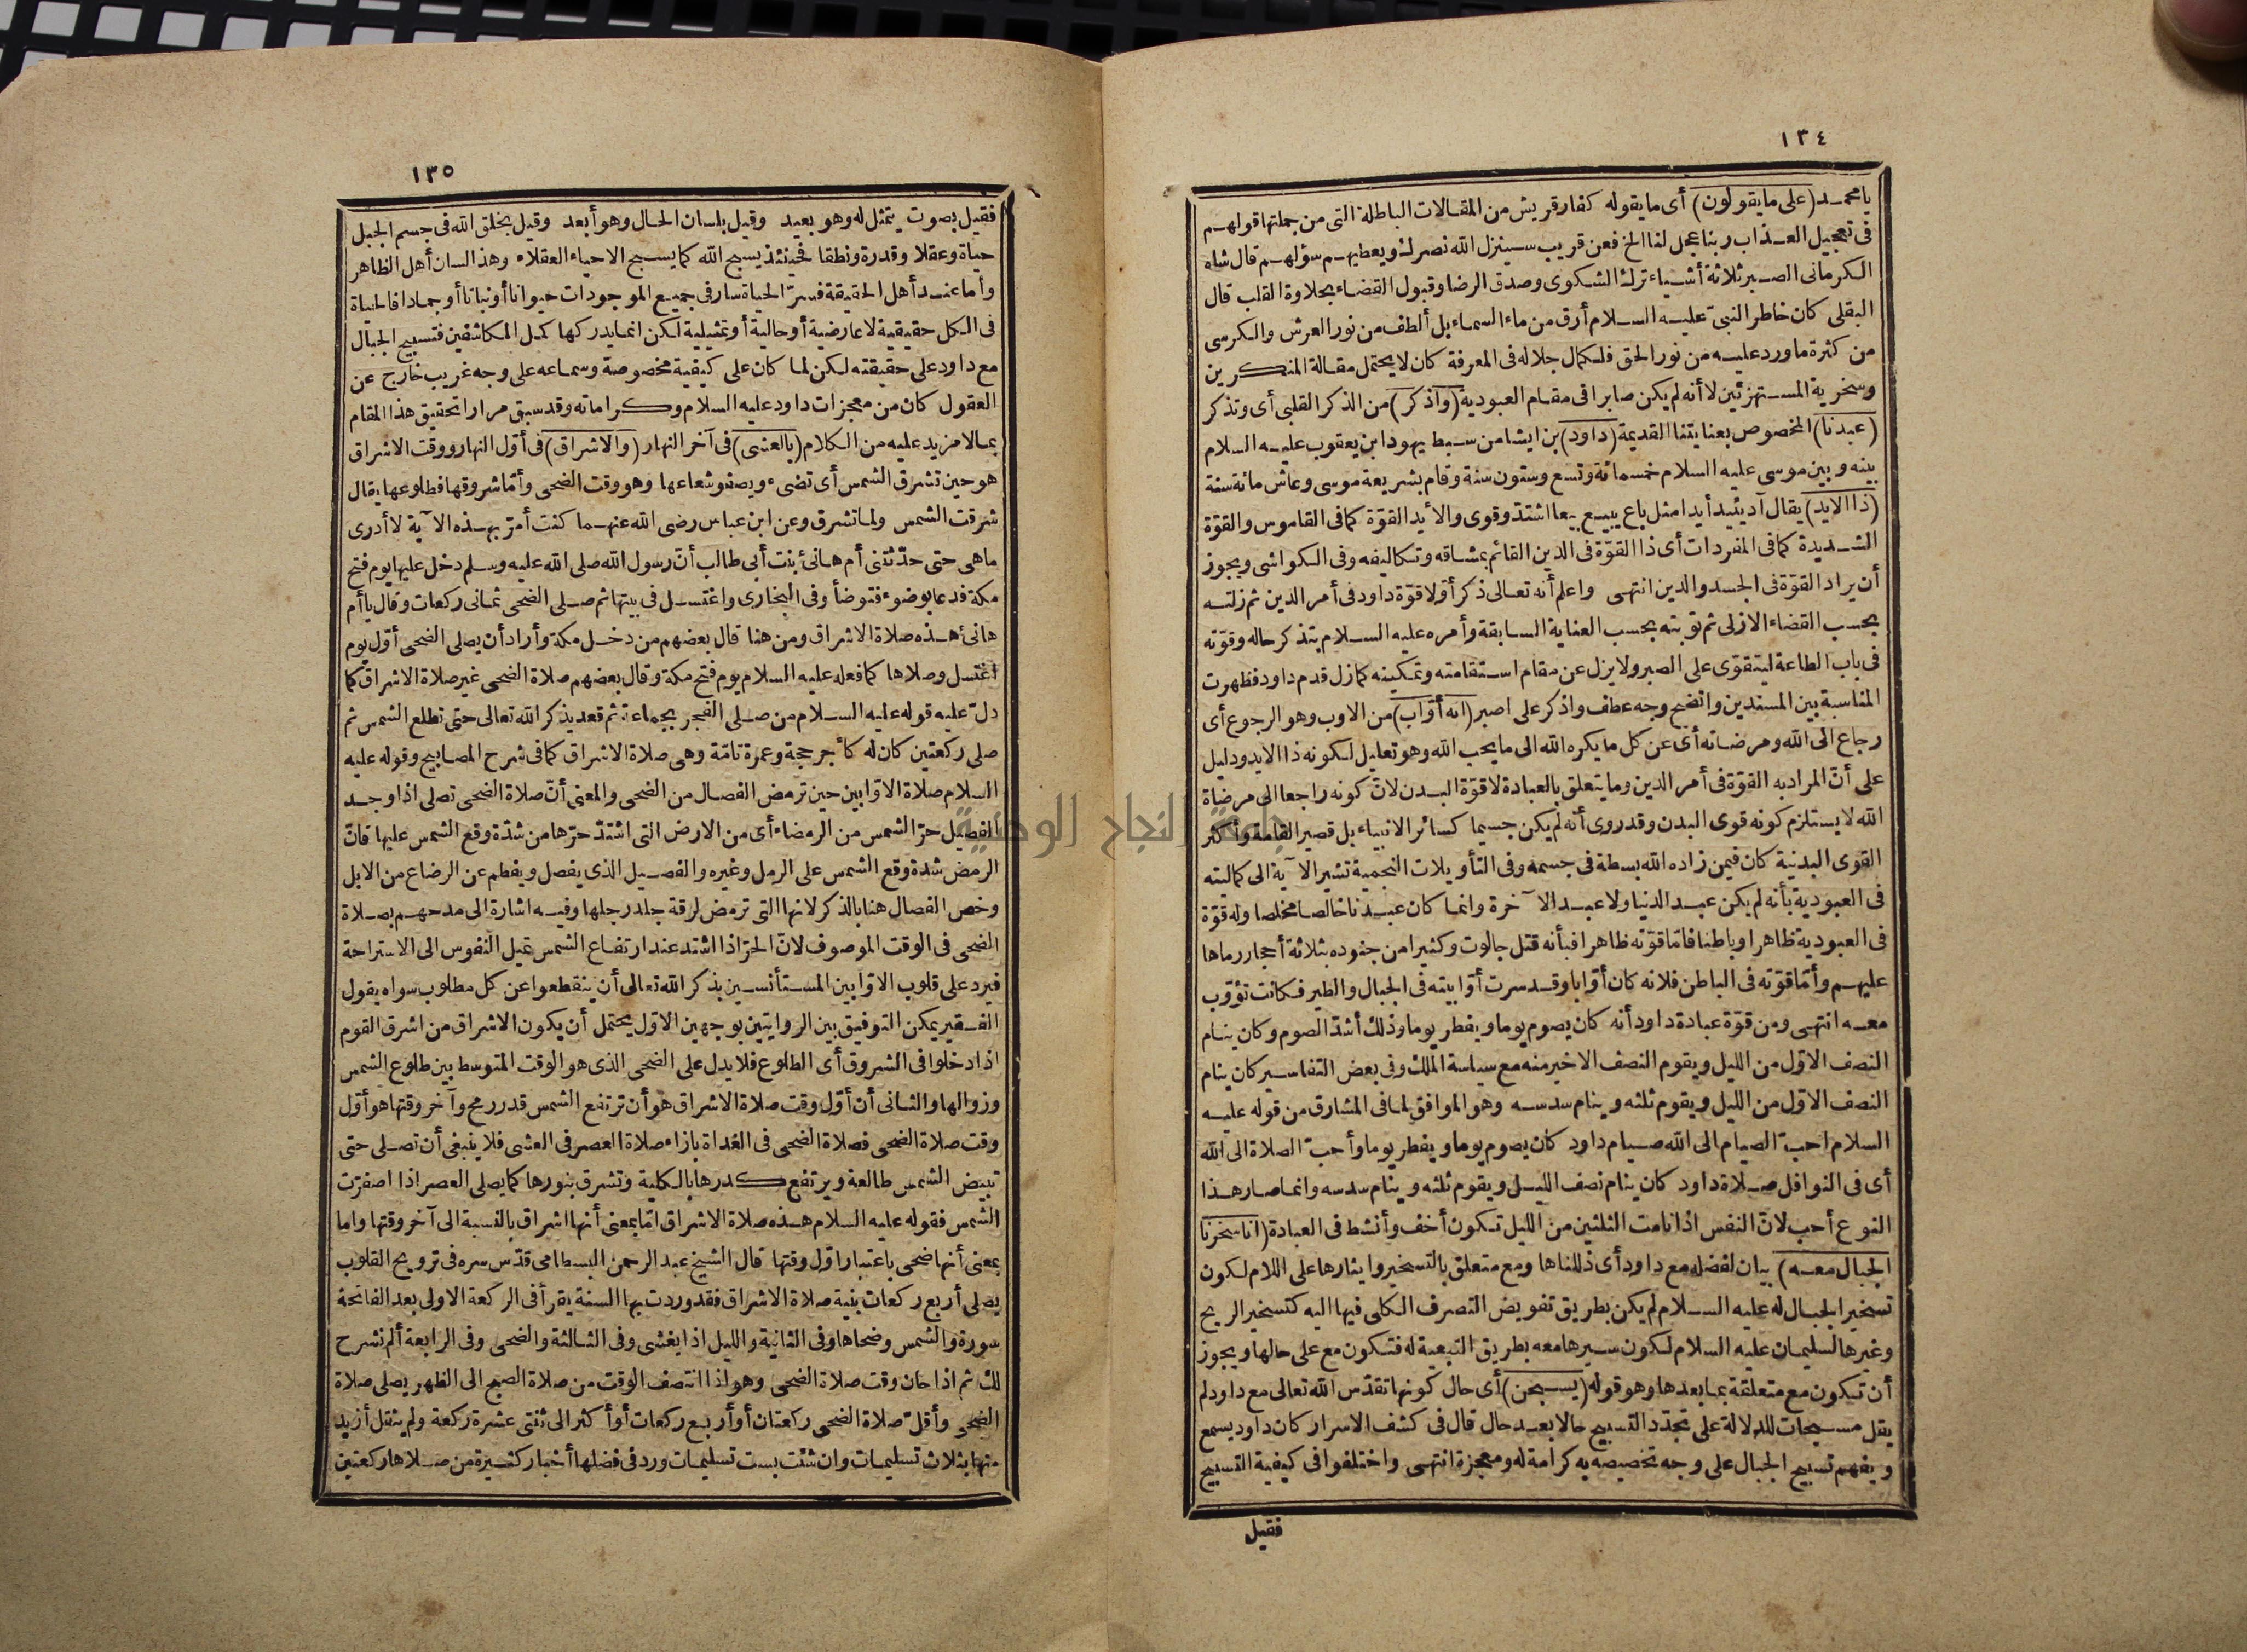 ١٣٤
يا محمد (على ما يقولون) أى ما يقوله كفار قريش من المقالات الباطلة التى من جملتها قولهم
فى تعجيل العذاب ربنا عجل لنا الخ فعن قريب سينزل الله نصرك ويعطيهم سؤلهم قال شاه
الكرمانى الصبر ثلاثة أشياء ترك الشكوى وصدق الرضا وقبول القضاء بحلاوة القلب قال
البقلى كان خاطر النبىّ عليه السلام أرق من ماء السماء بل ألطف من نور العرش والكرسى
من كثرة ما ورد عليه من نور الحق فلكمال جلاله فى المعرفة كان لا يحتمل مقالة المنكرين
وسخرية المستهزئين لا أنه لم يكن صابرا فى مقام العبودية (واذكر) من الذكر القلبى أى وتذكر
(عبدنا) المخصوص بعنايتنا القديمة (داود) بن ايشا من سبط يهودا بن يعقوب عليه السلام
بينه وبين موسى عليه السلام خمسمائة وتسع وستون سنة وقام بشريعة موسى وعاش مائة سنة
(ذا الايد) يقال آد يئيد أيدا مثل باع يبيع بيعا اشتدّ وقوى والأيد القوّة كما فى القاموس والقوّة
الشديدة كما فى المفردات أى ذا القوّة فى الدين القائم بمشاقه وتكاليفه وفى الكواشى ويجوز
أن يراد القوّة فى الجسد والدين انتهى واعلم أنه تعالى ذكر أوّلا قوّة داود فى أمر الدين ثم زلته
بحسب القضاء الازلى ثم توبته بحسب العناية السابقة وأمره عليه السلام بتذكر حاله وقوّته
فى باب الطاعة ليتقوّى على الصبر ولا يزل عن مقام استقامته وتمكينه كما زل قدم داود فظهرت
المناسبة بين المسندين واتضح وجه عطف واذكر على اصبر (انه أوّاب) من الاوب وهو الرجوع أى
رجاع الى الله ومرضاته أى عن كل ما يكره الله الى ما يحب الله وهو تعليل لكونه ذا الايد ودليل
على أنّ المراد به القوّة فى أمر الدين وما يتعلق بالعبادة لا قوّة البدن لانّ كونه راجعا الى مرضاة
الله لا يستلزم كونه قوى البدن وقد روى أنه لم يكن جسيما كسائر الانبياء بل قصير القامة وأكثر
القوى البدنية كان فيمن زاده الله بسطة فى جسمه وفى التأويلات النجمية تشير الآية الى كماليته
فى العبودية بأنه لم يكن عبد الدنيا ولا عبد الآخرة وانما كان عبدنا خالصا مخلصا وله قوّة
فى العبودية ظاهرا وباطنا فامّا قوّته ظاهرا فبأنه قتل جالوت وكثيرا من جنوده بثلاثة أحجار رماها
عليهم وأمّا قوّته فى الباطن فلانه كان أوّابا وقد سرت أوّابيته فى الجبال والطير فكانت تؤوّب
معه انتهى ومن قوّة عبادة داود أنه كان يصوم يوما ويفطر يوما وذلك أشدّ الصوم وكان ينام
النصف الاوّل من الليل ويقوم النصف الاخير منه مع سياسة الملك وفى بعض التفاسير كان ينام
النصف الاوّل من الليل ويقوم ثلثه وينام سدسه وهو الموافق لما فى المشارق من قوله عليه
السلام احبّ الصيام الى الله صيام داود كان يصوم يوما ويفطر يوما وأحبّ الصلاة الى الله
أى فى النوافل صلاة داود كان ينام نصف الليل ويقوم ثلثه وينام سدسه وانما صار هذا
النوع أحب لانّ النفس اذا نامت الثلثين من الليل تكون أخف وأنشط فى العبادة (انا سخرنا
الجبال معه) بيان لفضله مع داود أى ذللناها ومع متعلق بالتسخير وايثارها على اللام لكون
تسخير الجبال له عليه السلام لم يكن بطريق تفويض التصرف الكلى فيها اليه كتسخير الريح
وغيرها لسليمان عليه السلام لكون سيرها معه بطريق التبعية له فتكون مع على حالها ويجوز
أن تكون مع متعلقة بما بعدها وهو قوله (يسبحن) أى حال كونها تقدّس الله تعالى مع داود لم
يقل مسبحات للدلالة على تجدّد التسبيح حالا بعد حال قال فى كشف الاسرار كان داود يسمع
ويفهم تسبيح الجبال على وجه تخصيصه به كرامة له ومعجزة انتهى واختلفوا فى كيفية التسبيح
فقيل
١٣٥
فقيل بصوت يتمثل له وهو بعيد وقيل بلسان الحال وهو أبعد وقيل بخلق الله فى جسم الجبل
حياة وعقلا وقدرة ونطقا فحينئذ يسبح الله كما يسبح الاحياء العقلاء وهذا لسان أهل الظاهر
وأما عند أهل الحقيقة فسرّ الحياة سار فى جميع الموجودات حيوانا أو نباتا أو جمادا فالحياة
فى الكل حقيقية لا عارضية أو حالية أو تمثيلية لكن انما يدركها كمل المكاشفين فتسبيح الجبال
مع داود على حقيقته لكن لما كان على كيفية مخصوصة وسماعه على وجه غريب خارج عن
العقول كان من معجزات داود عليه السلام وكراماته وقد سبق مرارا تحقيق هذا المقام
بما لا مزيد عليه من الكلام (بالعشى) فى آخر النهار (والاشراق) فى أوّل النهار ووقت الاشراق
هو حين تشرق الشمس أى تضىء ويصفو شعاعها وهو وقت الضحى وأمّا شروقها فطلوعها يقال
شرقت الشمس ولما تشرق وعن ابن عباس رضى الله عنهما كنت أمرّ بهذه الآية لا أدرى
ما هى حتى حدّثتنى أم هانئ بنت أبى طالب أنّ رسول الله صلى الله عليه وسلم دخل عليها يوم فتح
مكة فدعا بوضوء فتوضأ وفى البخارى واغتسل فى بيتها ثم صلى الضحى ثمانى ركعات وقال يا أم
هانئ هذه صلاة الاشراق ومن هنا قال بعضهم من دخل مكة وأراد أن يصلى الضحى أوّل يوم
اغتسل وصلاها كما فعله عليه السلام يوم فتح مكة وقال بعضهم صلاة الضحى غير صلاة الاشراق كما
دلّ عليه قوله عليه السلام من صلى الفجر بجماعة ثم قعد يذكر الله تعالى حتى تطلع الشمس ثم
صلى ركعتين كان له كأجر حجة وعمرة تامّة وهى صلاة الاشراق كما فى شرح المصابيح وقوله عليه
السلام صلاة الاوّابين حين ترمض الفصال من الضحى والمعنى أنّ صلاة الضحى تصلى اذا وجد
الفصيل حرّ الشمس من الرمضاء أى من الارض التى اشتدّ حرّها من شدّة وقع الشمس عليها فانّ
الرمض شدة وقع الشمس على الرمل وغيره والفصيل الذى يفصل ويفطم عن الرضاع من الابل
وخص الفصال هنا بالذكر لانها التى ترمض لرقة جلد رجلها وفيه اشارة الى مدحهم بصلاة
الضحى فى الوقت الموصوف لانّ الحرّ اذا اشتد عند ارتفاع الشمس تميل النفوس الى الاستراحة
فيرد على قلوب الاوّابين المستأنسين بذكر الله تعالى أن ينقطعوا عن كل مطلوب سواه يقول
الفقير يمكن التوفيق بين الروايتين بوجهين الاوّل يحتمل أن يكون الاشراق من اشرق القوم
اذا دخلوا فى الشروق أى الطلوع فلا يدل على الضحى الذى هو الوقت المتوسط بين طلوع الشمس
وزوالها والثانى أن أوّل وقت صلاة الاشراق هو أن ترتفع الشمس قدر رمح وآخر وقتها هو أوّل
وقت صلاة الضحى فصلاة الضحى فى الغداة بازاء صلاة العصر فى العشى فلا ينبغى أن تصلى حتى
تبيض الشمس طالعة ويرتفع كدرها بالكلية وتشرق بنورها كما يصلى العصر اذا اصفرّت
الشمس فقوله عليه السلام هذه صلاة الاشراق امّا بمعنى أنها اشراق بالنسبة الى آخر وقتها واما
بمعنى أنها ضحى باعتبار اوّل وقتها قال الشيخ عبد الرحمن البسطامى قدّس سره فى ترويح القلوب
يصلى أربع ركعات بنية صلاة الاشراق فقد وردت بها السنة يقرأ فى الركعة الاولى بعد الفاتحة
سورة والشمس وضحاها وفى الثانية والليل اذا يغشى وفى الثالثة والضحى وفى الرابعة ألم نشرح
لك ثم اذا حان وقت صلاة الضحى وهو اذا انتصف الوقت من صلاة الصبح الى الظهر يصلى صلاة
الضحى وأقلّ صلاة الضحى ركعتان أو أربع ركعات أو أكثر الى ثنتى عشرة ركعة ولم ينقل أزيد
منها بثلاث تسليمات وان شئت بست تسليمات ورد فى فضلها أخبار كثيرة من صلاها ركعتين